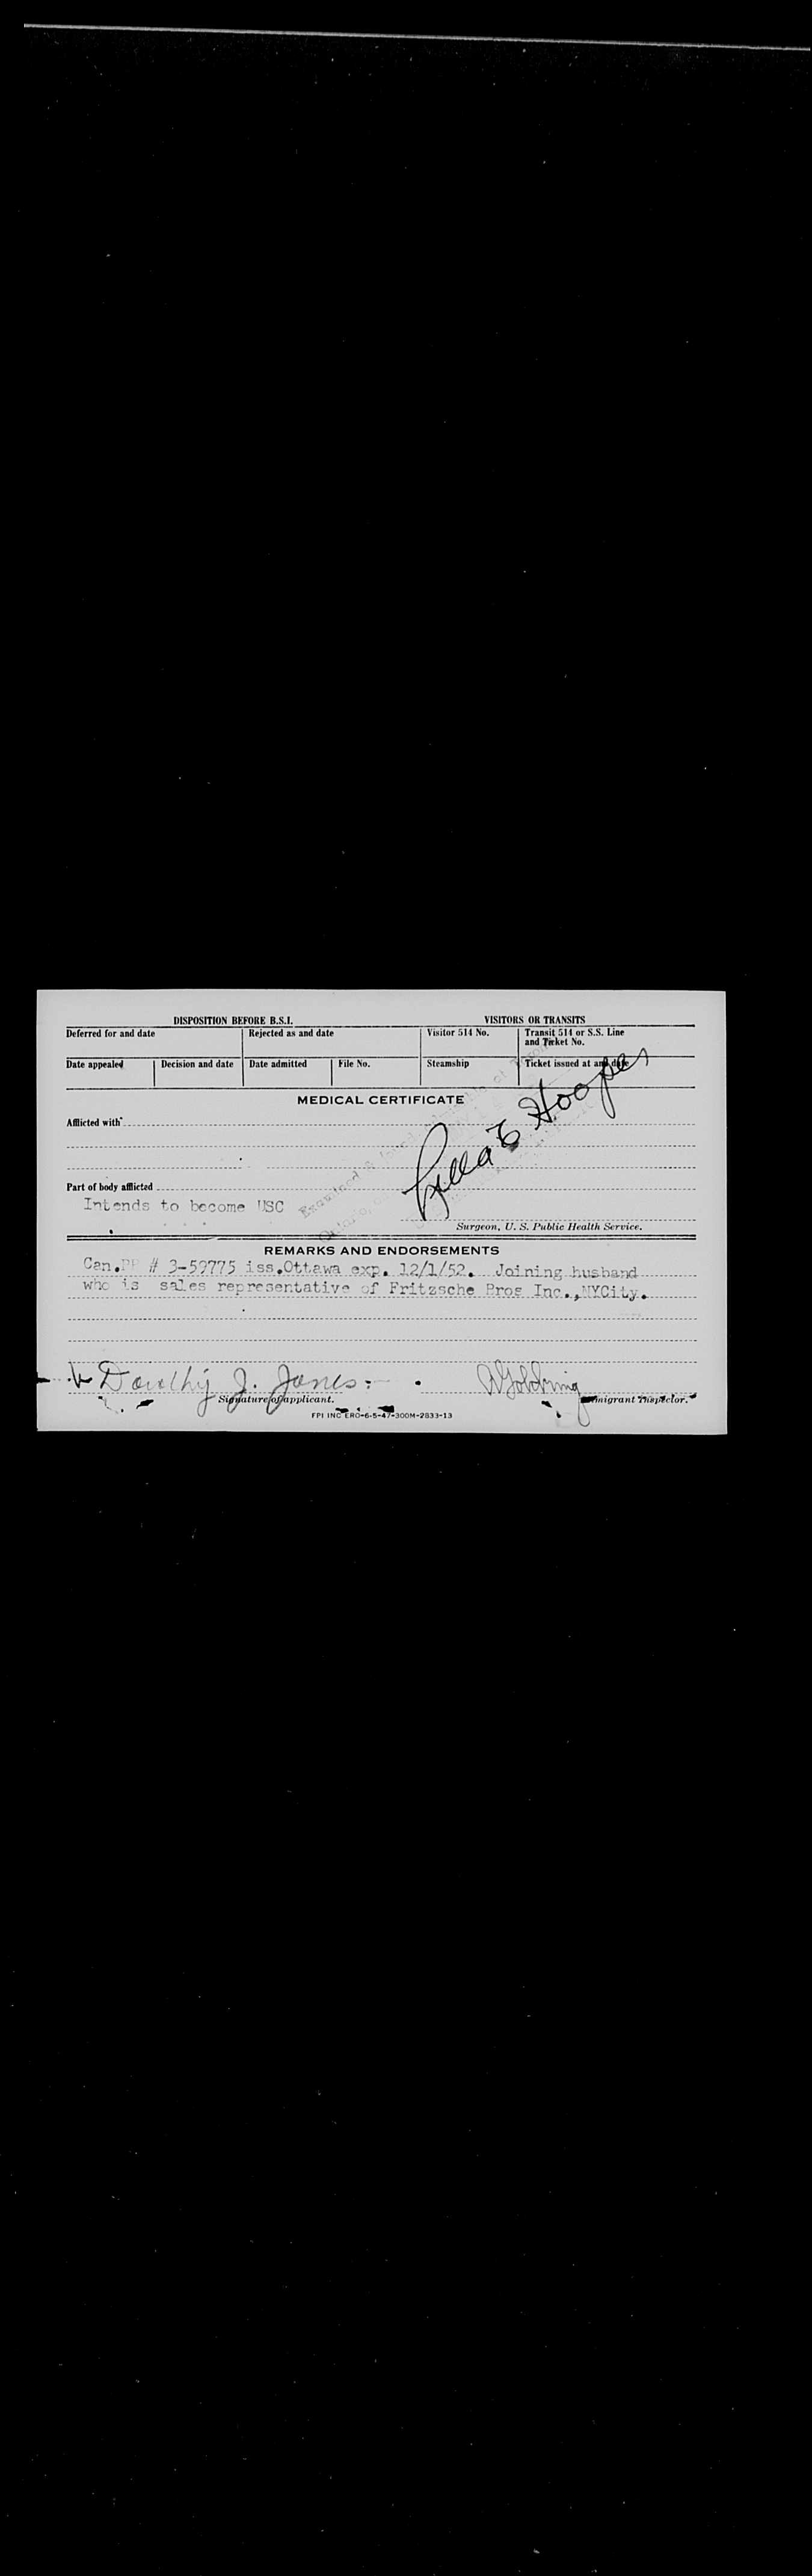 DISPOSITION BEFORE B.S.I. VISITORS OR TRANSITS
Deferred for and date Rejected as and date Visitor 514 No. Transit 514 or S.S. Line and Ticket No.
Date appealed Decision and date Date admitted File No. Steamship Ticket issued at and date
MEDICAL CERTIFICATE
Afflicted with
Part of body afflicted
Intends to become USC
Surgeon, U. S. Public Health Service.
REMARKS AND ENDORSEMENTS
Can.PP # 3-59775 iss.Ottawa exp. 12/1/52. Joining husband
who is sales representative of Fritzsche Bros Inc.,NYCity.
Dorothy J. Jones
Signature of applicant. Immigrant Inspector.
FPI INC ERO-6-5-47-300M-2833-13